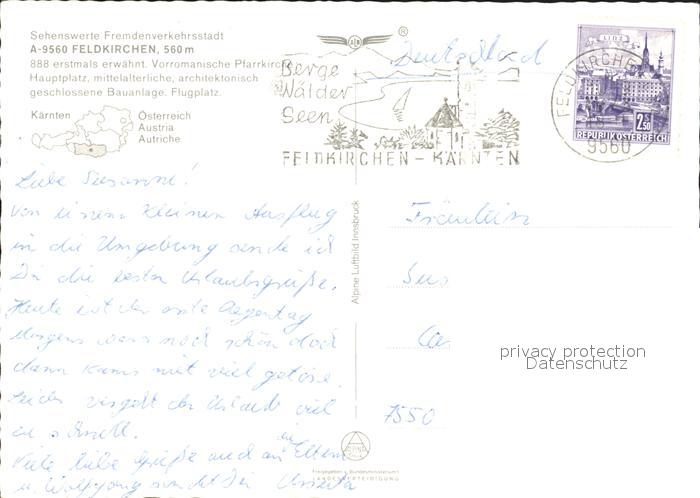 Sehenswerte Fremdenverkehrsstadt
A-9560 FELDKIRCHEN, 560 m
888 erstmals erwähnt. Vorromanische Pfarrkirche
Hauptplatz, mittelalterliche, architektonisch
geschlossene Bauanlage. Flugplatz.
Kärnten
Österreich
Austria
Autriche
®
Berge
Wälder
Seen
FELDKIRCHEN – KÄRNTEN
Deutschland
LINZ
2.50
REPUBLIK ÖSTERREICH
FELDKIRCHEN
9560
Liebe Susanne!
Von einem kleinen Ausflug
in die Umgebung sende ich
Dir die besten Urlaubsgrüße.
Heute ist der erste Regentag
Morgens war's noch schön doch
dann kam's mit viel getöse.
Leider vergeht der Urlaub viel
zu schnell.
Viele liebe Grüße auch an die Eltern
u. Wolfgang sendet Dir
Alpine Luftbild Innsbruck
Fräulein
Sus
Ca
7550
privacy protection
Datenschutz
Freigegeben v. Bundesministerium f.
LANDESVERTEIDIGUNG